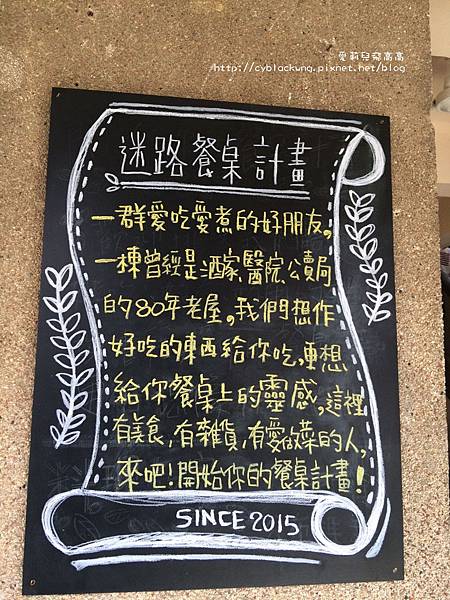 愛莉兒飛高高
http://cyblackung.pixnet.net/blog
迷路餐桌計畫
一群愛吃愛煮的好朋友,
一棟曾經是酒家、醫院、公賣局
的80年老屋。我們想作
好吃的東西給你吃,更想
給你餐桌上的靈感,這裡
有美食,有雜貨,有愛做菜的人,
來吧!開始你的餐桌計畫!
SINCE 2015